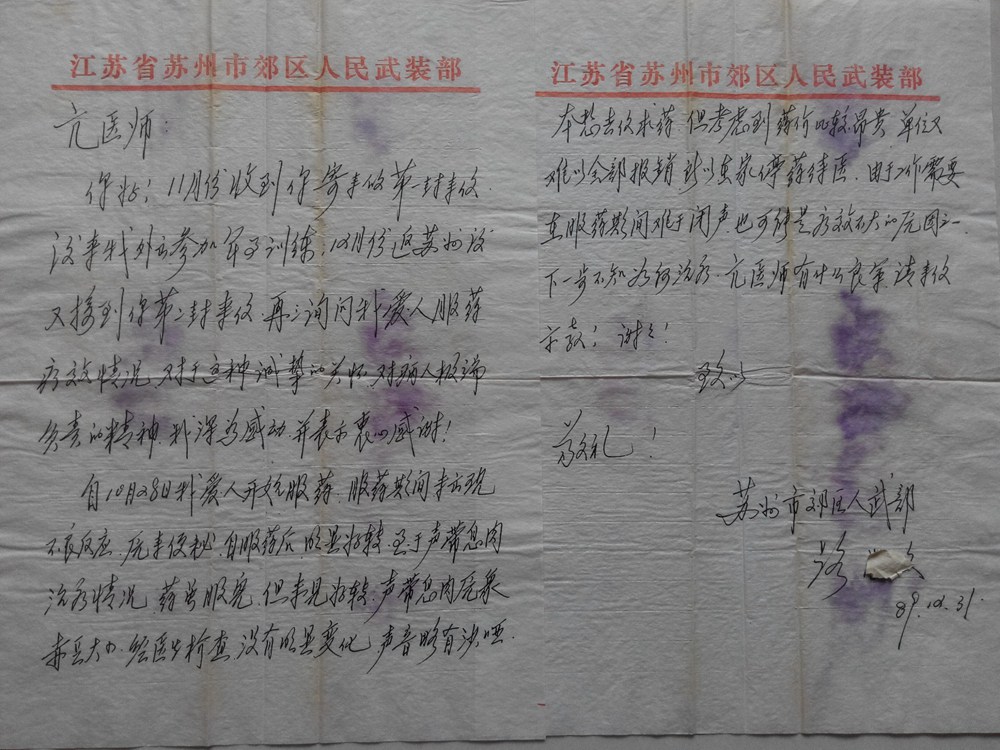 江苏省苏州市郊区人民武装部
亢医师:
你好!11月份收到你寄来的第一封来信
后来我外出参加军事训练,12月份返苏州后
又接到你第二封来信,再三询问我爱人服药
疗效情况,对于这种诚挚的关怀,对病人极端
负责的精神,我深为感动,并表示衷心感谢!
自10月28日我爱人开始服药,服药期间未出现
不良反应,原来便秘,自服药后,明显好转,至于声带息肉
治疗情况,药已服完,但未见好转,声带息肉原来
赤豆大小,经医生检查,没有明显变化,声音略有沙哑.
江苏省苏州市郊区人民武装部
本想去信求药,但考虑到药价比较昂贵,单位又
难以全部报销,所以在家停药待医,由于工作需要
在服药期间难于闭声也可能是疗效不大的原因之一.
下一步不知如何治疗,亢医师有什么良策,请来信
示教!谢谢!
致以
敬礼!
苏州市郊区人武部
路
89.12.31.